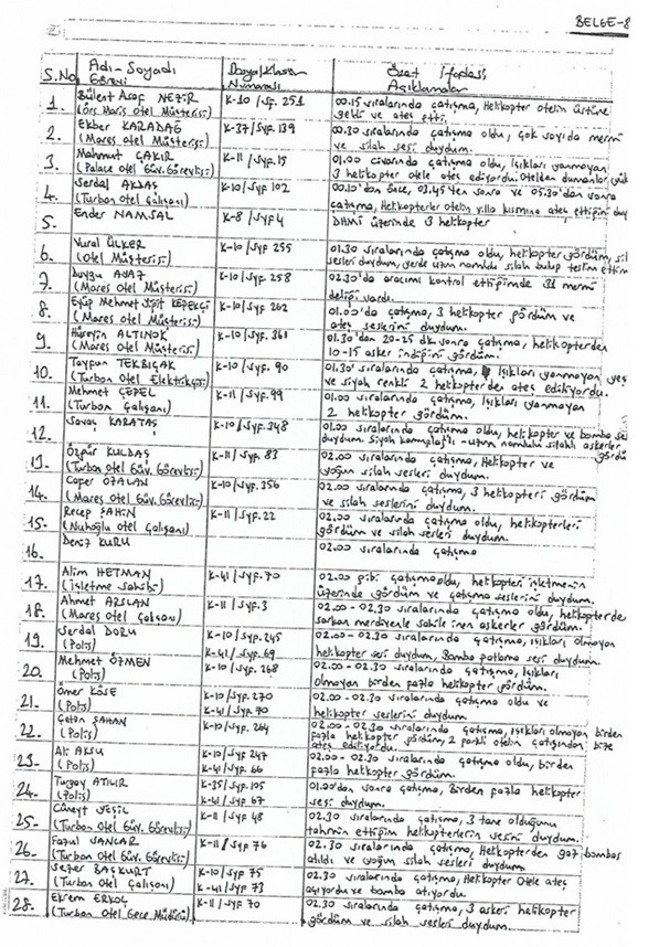 BELGE-8
S.No Adı-Soyadı Görevi Dosya/Klasör Numarası Özet İfadesi Açıklamalar
1. Bülent Asaf NEZİR K-10 /Syf. 251 00.15 sıralarında çatışma, Helikopter otelin üstüne
(Grs Maris Otel Müşterisi) geldi ve ateş etti.
2. Ekber KARADAĞ K-37/Syf.139 00.30 sıralarında çatışma oldu, çok sayıda mermi
(Mares Otel Müşterisi) ve silah sesi duydum.
3. Mahmut ÇAKIR K-11 /Syf.15 01.00 civarında çatışma oldu, Işıkları yanmayan
(Palace Otel Güv.Görevlisi) 3 helikopter otele ateş ediyordu. Otelden dumanlar yük
4. Serdal AKDAŞ K-10/Syf 102 00.10'dan önce, 03.45'ten sonra ve 05.30'dan sonra
(Turban Otel Çalışanı) çatışma, Helikopterler otelin villa kısmına ateş ettiğini duy
5. Ender NAMSAL K-8 /Syf 4 DHMİ üzerinde 3 helikopter
6. Vural ÜLKER K-10 /Syf 255 01.30 sıralarında çatışma oldu, helikopter gördüm, sil
(Otel Müşterisi) sesleri duydum, yerde uzun namlulu silah bulup teslim ettim
7. Duygu AVAZ K-10 /Syf 258 02.30'da aracımı kontrol ettiğimde 31 mermi
(Mares Otel Müşterisi) deliği vardı.
8. Eyüp Mehmet Yiğit KEPEKÇİ K-10 /Syf 262 01.00'da çatışma, 3 helikopter gördüm ve
(Mares Otel Müşterisi) ateş seslerini duydum.
9. Hüseyin ALTINOK K-10 /Syf.361 01.30'dan 20-25 dk. sonra çatışma, helikopterden
(Mares Otel Müşterisi) 10-15 asker indiğini gördüm.
10. Tayfun TEKBIÇAK K-10/Syf. 90 01.30' sıralarında çatışma, Işıkları yanmayan yeş
(Turban Otel Elektrikçisi) ve siyah renkli 2 helikopterden ateş ediliyordu.
11. Mehmet ÇEPEL K-11 /Syf 99 01.00 sıralarında çatışma, Işıkları yanmayan
(Turban Çalışanı) 2 helikopter gördüm.
12. Savaş KARATAŞ K-10/Syf.348 01.00 sıralarında çatışma oldu, helikopter ve bomba ses
duydum. Siyah kamuflajlı-uzun namlulu silahlı askerler gördü
13. Özgür KULDAŞ K-11/Syf. 83 02.00 sıralarında çatışma, Helikopter ve
(Turban Otel Güv. Görevlisi) yoğun silah sesleri duydum.
14. Caper ÖZALAN K-10/Syf.356 02.00 sıralarında çatışma, 3 helikopteri gördüm
(Mares Otel Güv.Görevlisi) ve silah seslerini duydum.
15. Recep ŞAHİN K-11 /Syf.22 02.00 sıralarında çatışma oldu, helikopterleri
(Nuhoğlu Otel Çalışanı) gördüm ve silah sesleri duydum.
16. Deniz KURU 02.00 sıralarında çatışma
17. Alim HETMAN K-41/Syf.70 02.00 gibi çatışma oldu, helikopteri işletmenin
(İşletme Sahibi) üzerinde gördüm ve çatışma seslerini duydum.
18. Ahmet ARSLAN K-11/Syf.3 02.00-02.30 sıralarında çatışma oldu, helikopterde
(Mares Otel Çalışanı) sarkan merdivenle sahile inen askerler gördüm.
19. Serdal DORU K-10/Syf.245 02.00-02.30 sıralarında çatışma, ışıkları olmayan
(Polis) K-41/Syf.69 helikopter sesi duydum, Bomba patlama sesi duydum.
20. Mehmet ÖZMEN K-10/Syf.268 02.00-02.30 sıralarında çatışma, Işıkları
(Polis) olmayan birden fazla helikopter gördüm.
21. Ömer KÖSE K-10/Syf.270 02.00-02.30 sıralarında çatışma oldu ve
(Polis) K-41/Syf 70 helikopter seslerini duydum.
22. Çetin ŞAHAN K-10/Syf.264 02.00-02.30 sıralarında çatışma, ışıkları olmayan birden
(Polis) fazla helikopter gördüm, 2 farklı otelin çatısından bize
ateş ediliyordu.
23. Ali AKSU K-10/Syf 247 02.00-02.30 sıralarında çatışma oldu, birden
(Polis) K-41/Syf 66 fazla helikopter gördüm.
24. Turgay ATILIR K-35/Syf.105 01.00'dan sonra çatışma, Birden fazla helikopter
(Polis) K-41/Syf 67 sesi duydum.
25. Cüneyt YEŞİL K-11/Syf 48 02.30 sıralarında çatışma, 3 tane olduğunu
(Turban Otel Güv.Görevlisi) tahmin ettiğim helikopterlerin sesini duydum.
26. Fazıl SANCAR K-11/Syf 76 02.30 sıralarında çatışma, Helikopterden gaz bombas
(Turban Otel Güv. Görevlisi) atıldı ve yoğun silah sesleri duydum.
27. Sezer BAŞKURT K-10/Syf 75 02.30 sıralarında çatışma, Helikopter Otele ateş
(Turban Otel Çalışanı) K-41/Syf 73 açıyordu ve bomba atıyordu.
28. Ekrem ERKOÇ K-11/Syf 70 02.30 sıralarında çatışma, 3 askeri helikopter
(Turban Otel Gece Müdürü) gördüm ve silah sesleri duydum.